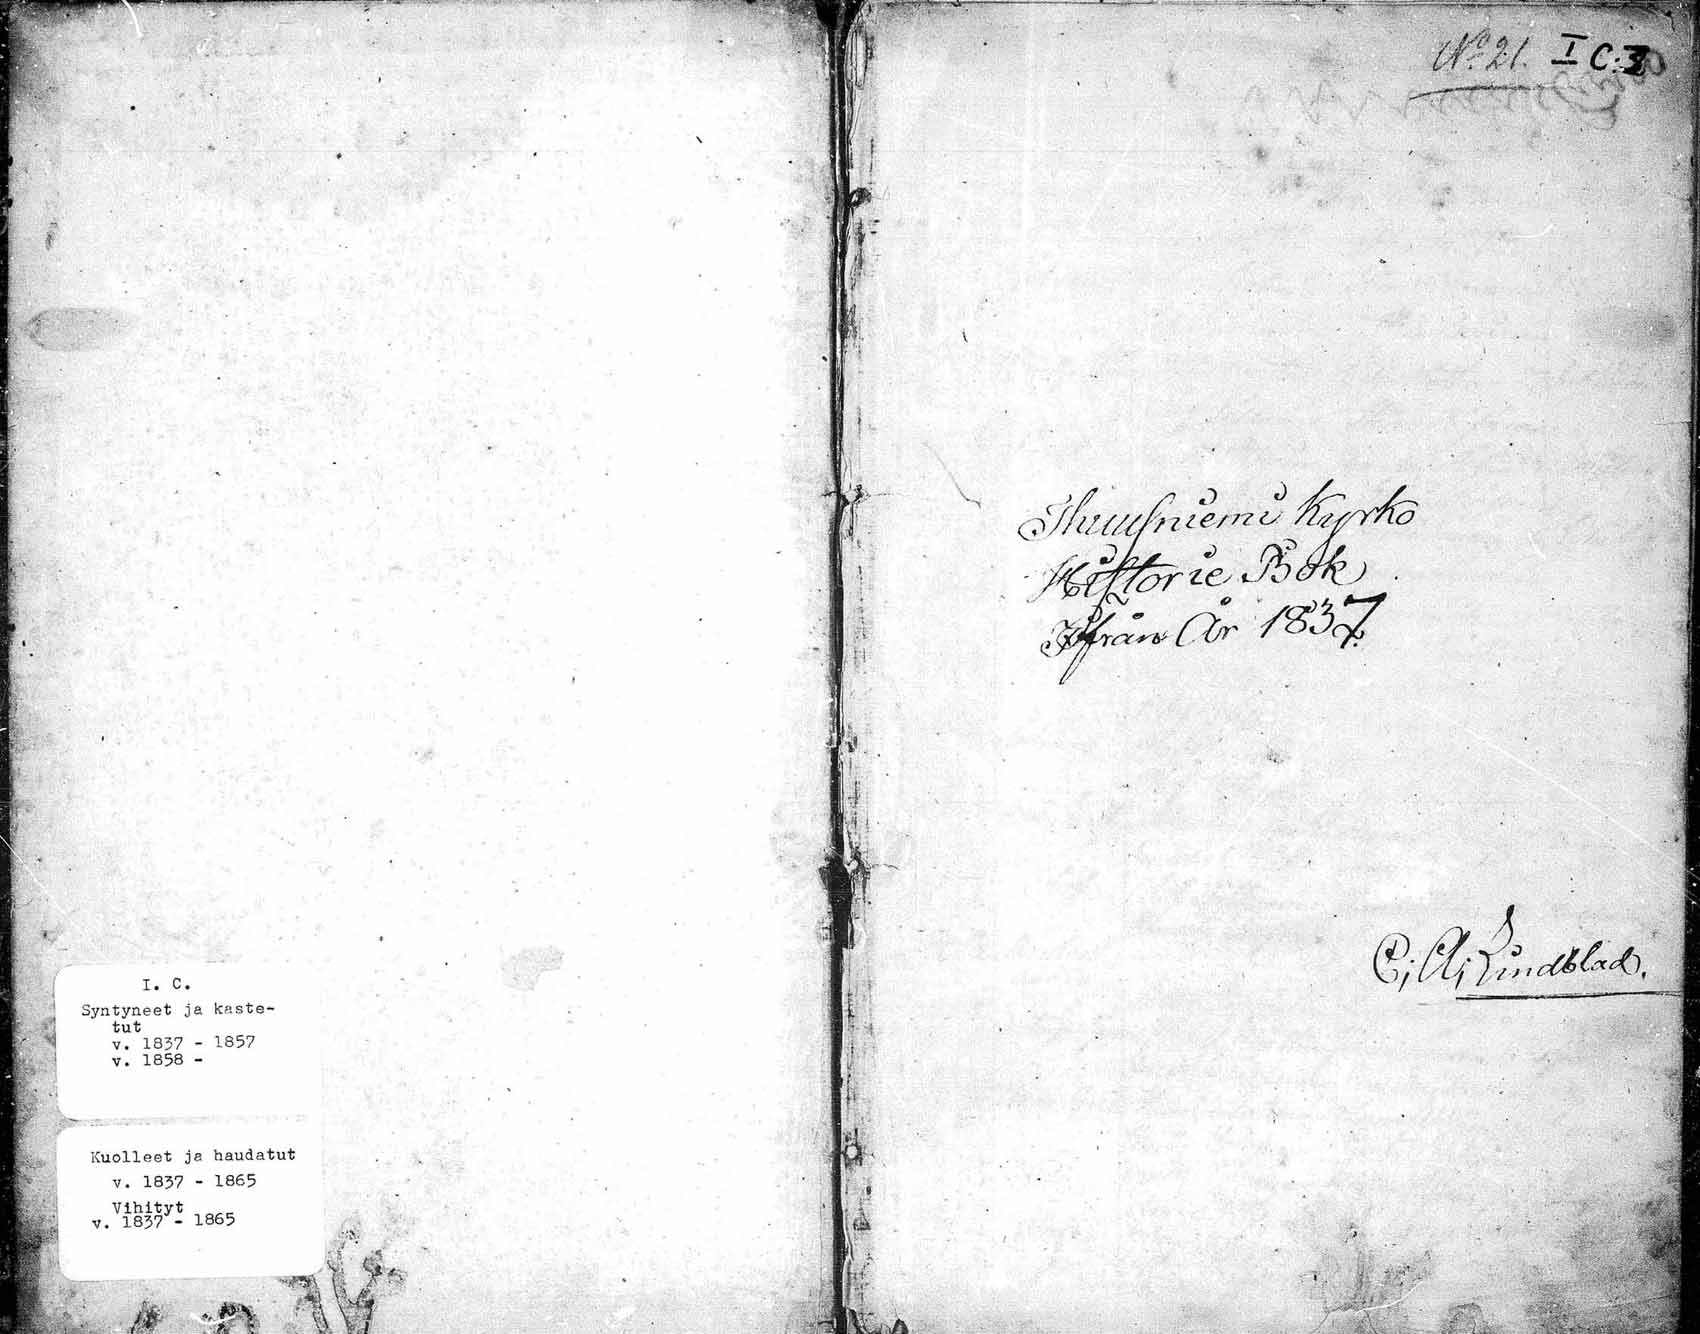 I. C.
Syntyneet ja kaste-
tut
v. 1837 - 1857
v. 1858 -
Kuolleet ja haudatut
v. 1837 - 1865
Vihityt
v. 1837 - 1865
No 21. I C:3
Thuusniemi Kyrko
Historie Bok
Ifrån År 1837.
C; A; Lindblad.